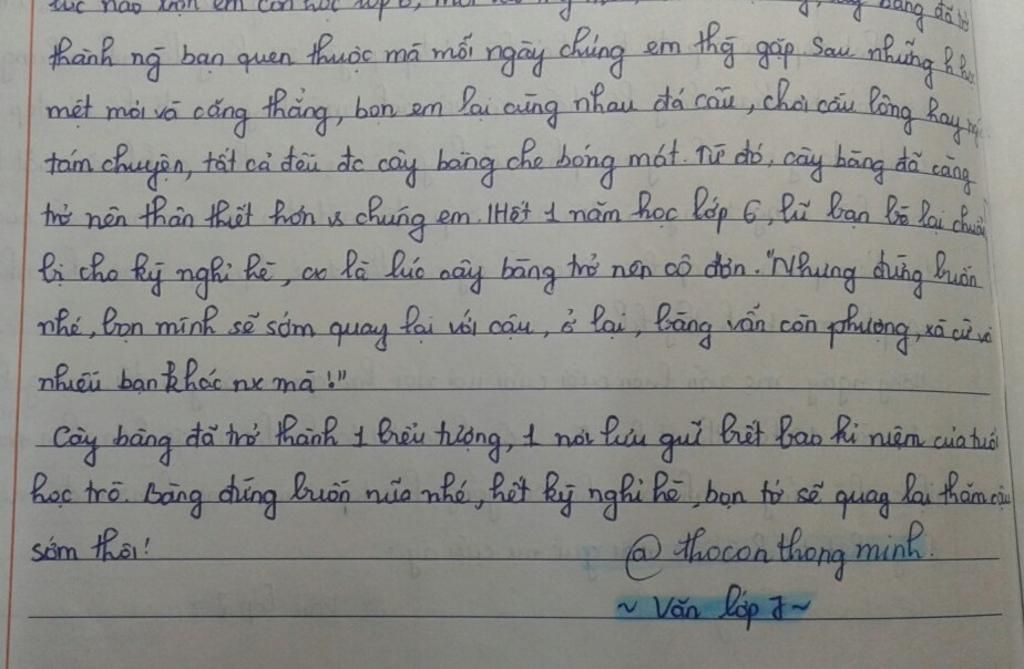 lúc nào trộn em còn học lớp 6, bàng đã trở
thành ng̃ bạn quen thuộc mà mỗi ngày chúng em thg̃ gặp. Sau những h học
mệt mỏi và căng thẳng, bọn em lại cùng nhau đá cầu, chơi cầu lông hay
tám chuyện, tất cả đều đc cây bàng che bóng mát. Từ đó, cây bàng đã càng
trở nên thân thiết hơn vs chúng em. Hết 1 năm học lớp 6, lũ bạn bè lại chuẩn
bị cho kỳ nghỉ hè, co là lúc cây bàng trở nên cô đơn. "Nhưng đừng buồn
nhé, bọn mình sẽ sớm quay lại với cậu, ở lại, bàng vẫn còn phượng, xà cừ và
nhiều bạn khác nx mà!"
Cây bàng đã trở thành 1 biểu tượng, 1 nơi lưu giữ biết bao kỉ niệm của tuổi
học trò. Bàng đừng buồn nữa nhé, hết kỳ nghỉ hè, bọn tớ sẽ quay lại thăm cậu
sớm thôi!
@ thocon thong minh.
~ Văn lớp 7 ~